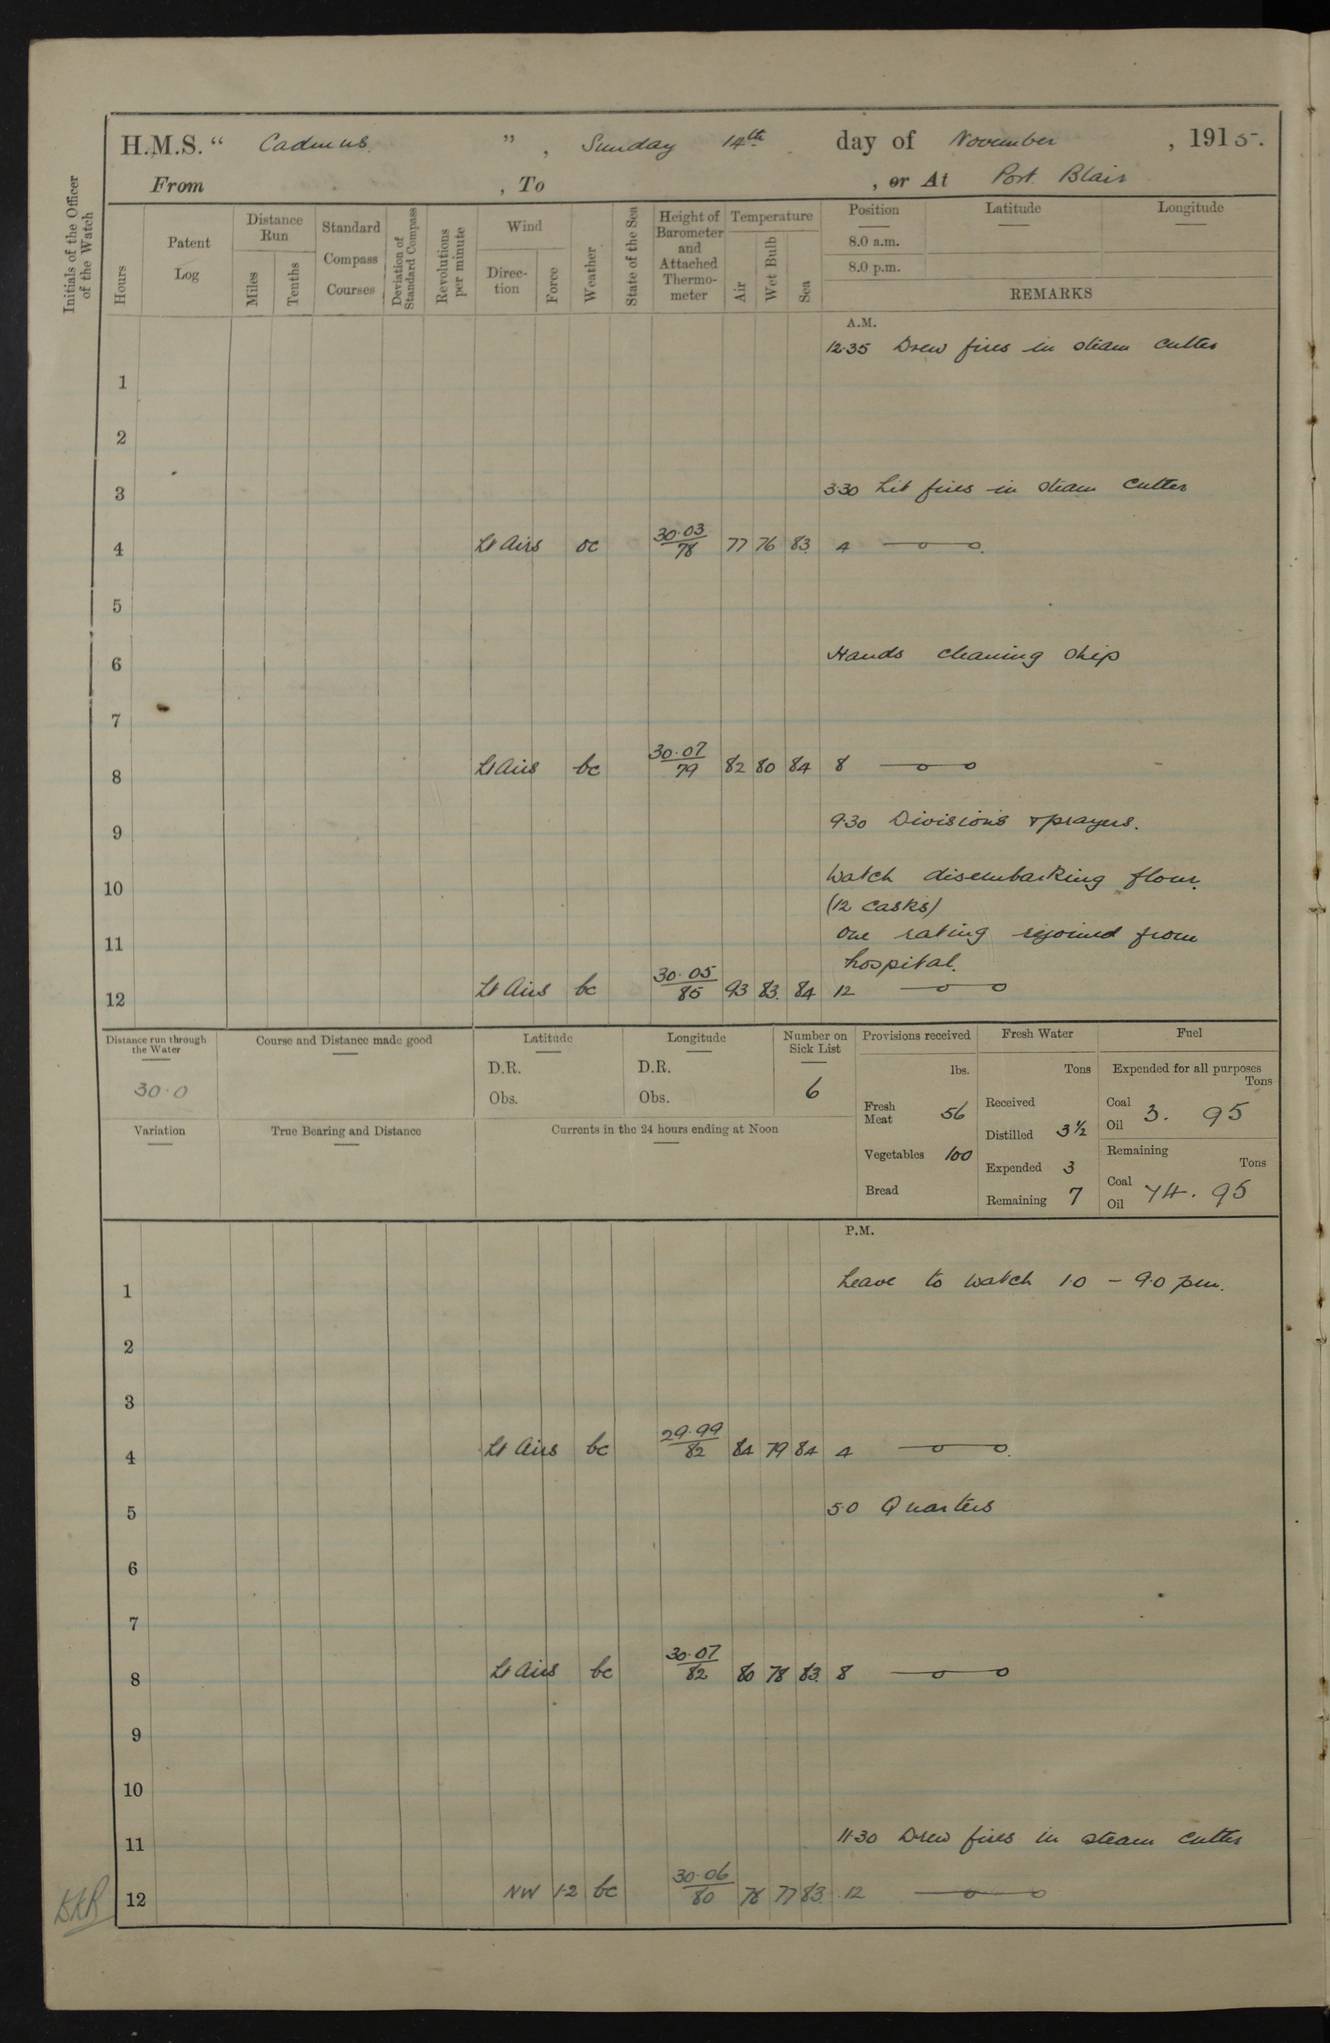 H.M.S. “ Cadmus ” , Sunday 14th day of November , 1915.
From , To , or At Port Blair
Initials of the Officer of the Watch
Hours
Patent Log
Distance Run
Miles
Tenths
Standard Compass Courses
Deviation of Standard Compass
Revolutions per minute
Wind
Direction
Force
Weather
State of the Sea
Height of Barometer and Attached Thermometer
Temperature
Air
Wet Bulb
Sea
Position Latitude Longitude
8.0 a.m.
8.0 p.m.
REMARKS
A.M.
12.35 Drew fires in steam cutter
1
2
3 3.30 Lit fires in steam cutter
4 Lt Airs oc 30.03/78 77 76 83 4
5
6 Hands cleaning ship
7
8 Lt Airs bc 30.07/79 82 80 84 8
9 9.30 Divisions & prayers.
10 Watch disembarking flour.
(12 casks)
11 One rating rejoined from
hospital.
12 Lt Airs bc 30.05/85 93 83 84 12
Distance run through the Water
30.0
Course and Distance made good
Latitude
D.R.
Obs.
Longitude
D.R.
Obs.
Number on Sick List
6
Variation
True Bearing and Distance
Currents in the 24 hours ending at Noon
Provisions received
lbs.
Fresh Meat 56
Vegetables 100
Bread
Fresh Water
Tons
Received
Distilled 3½
Expended 3
Remaining 7
Fuel
Expended for all purposes
Tons
Coal
Oil 3. 95
Remaining
Tons
Coal
Oil 74. 95
P.M.
1 Leave to watch 1.0 - 9.0 pm.
2
3
4 Lt Airs bc 29.99/82 84 79 84 4
5 5.0 Quarters
6
7
8 Lt Airs bc 30.07/82 80 78 83 8
9
10
11 11.30 Drew fires in steam cutter
12 NW 1-2 bc 30.06/80 78 77 83 12